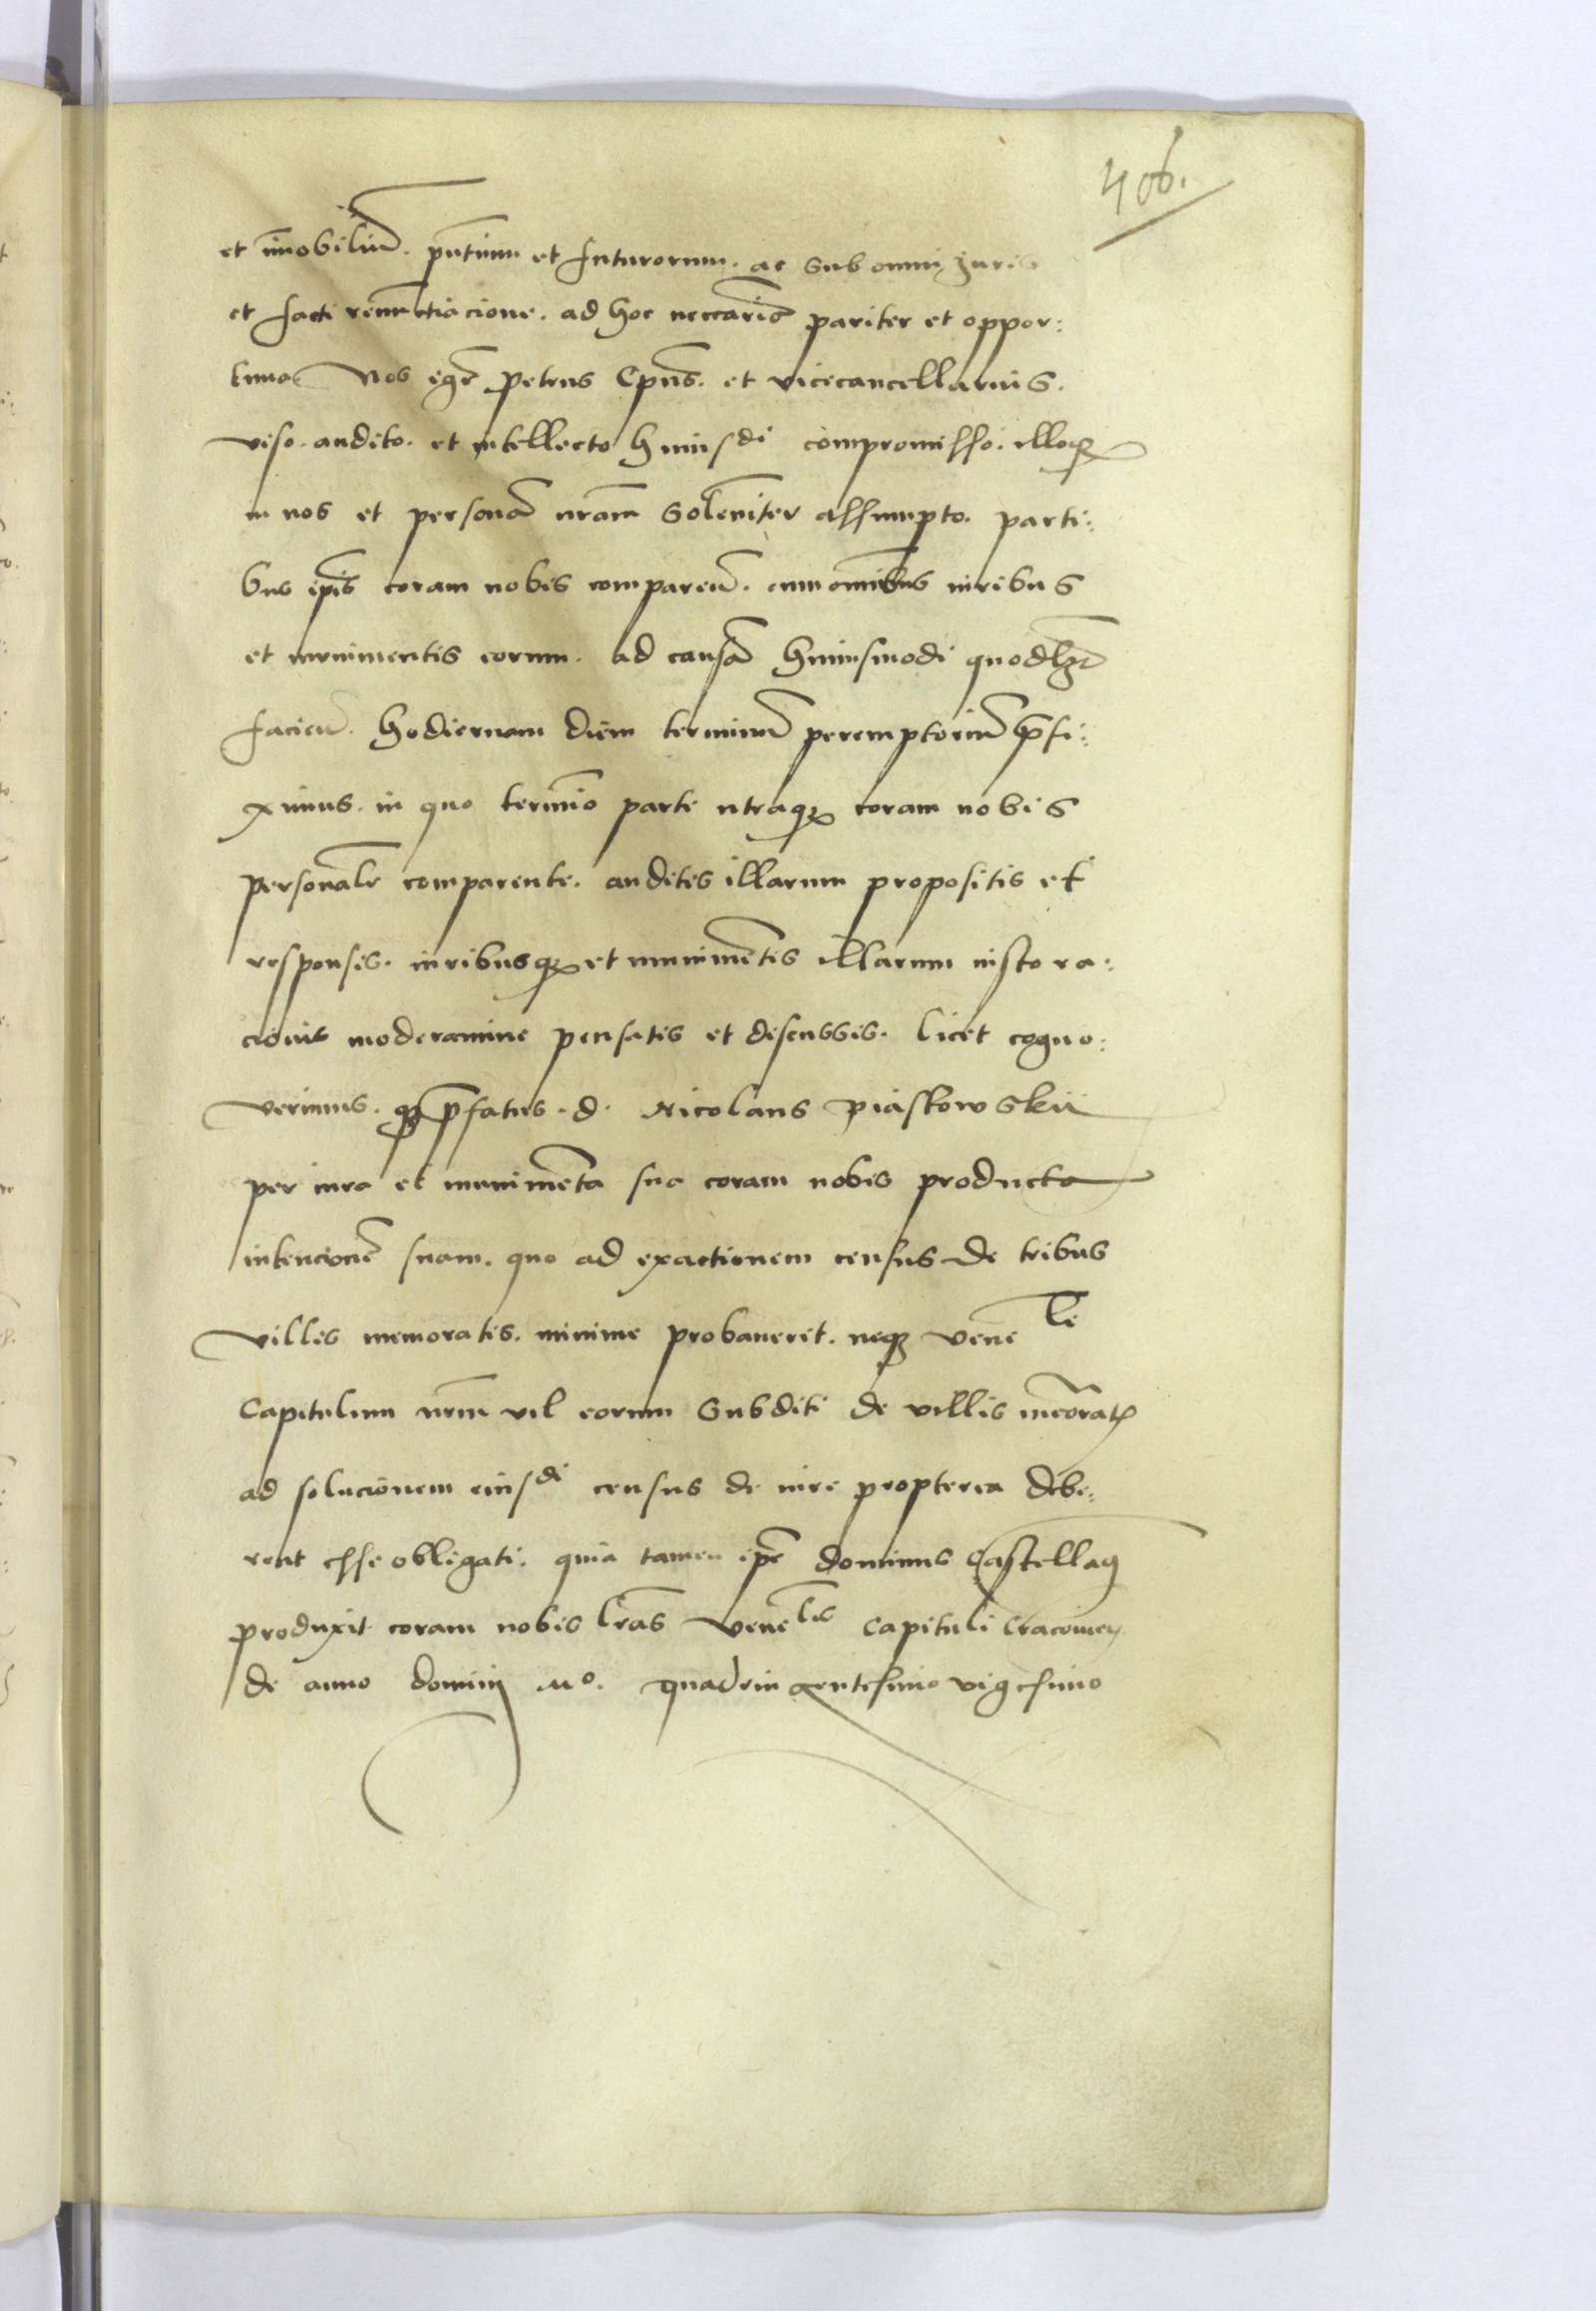 406.
et im̄obiliū. pn̄tium et futurorum. ac sub omni Juris
et facti renunctiacione. ad hoc necc̄aria pariter et oppor:
tuna Nos igr̄ Petrus Ep̄us. et vicecancellarius.
viso. audito. et intellecto huiusdi compromisso. illoqꝫ
in nos et personā nr̄am solēniter assumpto. parti:
bus ip̄is coram nobis compareñ. cum om̄ibus iuribus
et munimentis eorum. ad causā huiusmodi quodlȝt
facieñ. hodiernam diem terminū peremptoriū p̄fi:
ximus. in quo termīo parte utraqꝫ coram nobis
personalr̄ comparente. auditis illarum propositis et
responsis. iuribusqꝫ et munimētis illarum iusto ra:
cionis moderamine pensatis et discussis. licet cogno:
verimus. qꝫ p̄fatus. d. Nicolaus Piaskowskii
per iura et munimēta sua coram nobis producta
intencionē suam. quo ad exactionem census de tribus
villis memoratis. minime probauerit. neqꝫ venēle
Capitulum nr̄m vel eorum subditi de villis mēoratꝭ
ad solucionem eiusdi census de iure propterea debe:
rent esse obligati: quia tamen ip̄e dominus Castellaꝰ
produxit coram nobis lr̄as venēlis Capituli Cracouieñ
de anno domini Mo. quadringentesimo vigesimo